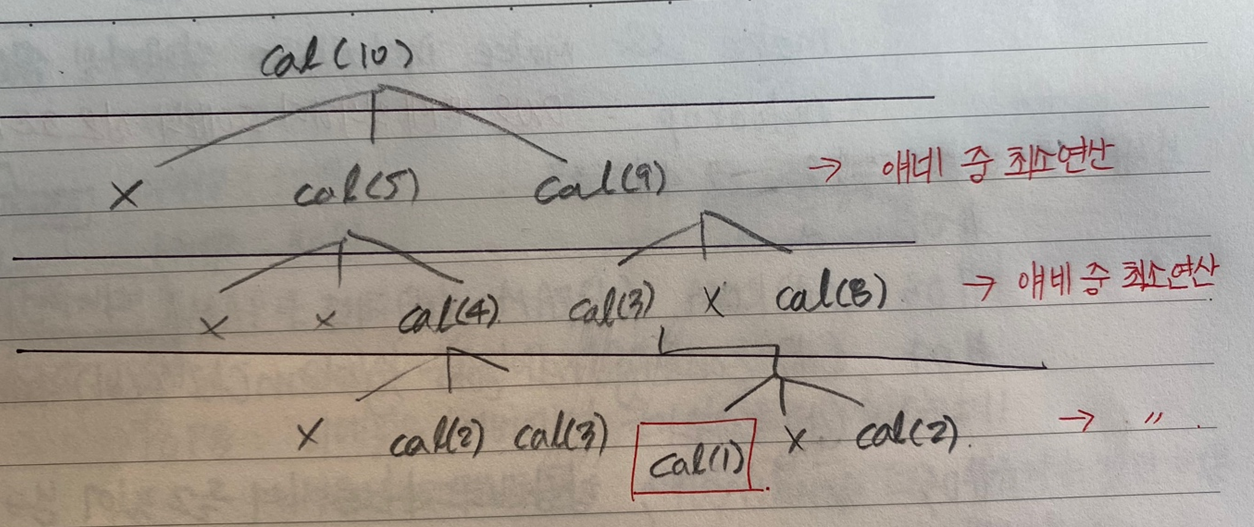 cal(10)
X cal(5) cal(9) → 얘네 중 최소연산
X X cal(4) cal(3) X cal(8) → 얘네 중 최소연산
X cal(2) cal(3) cal(1) X cal(2) → 〃